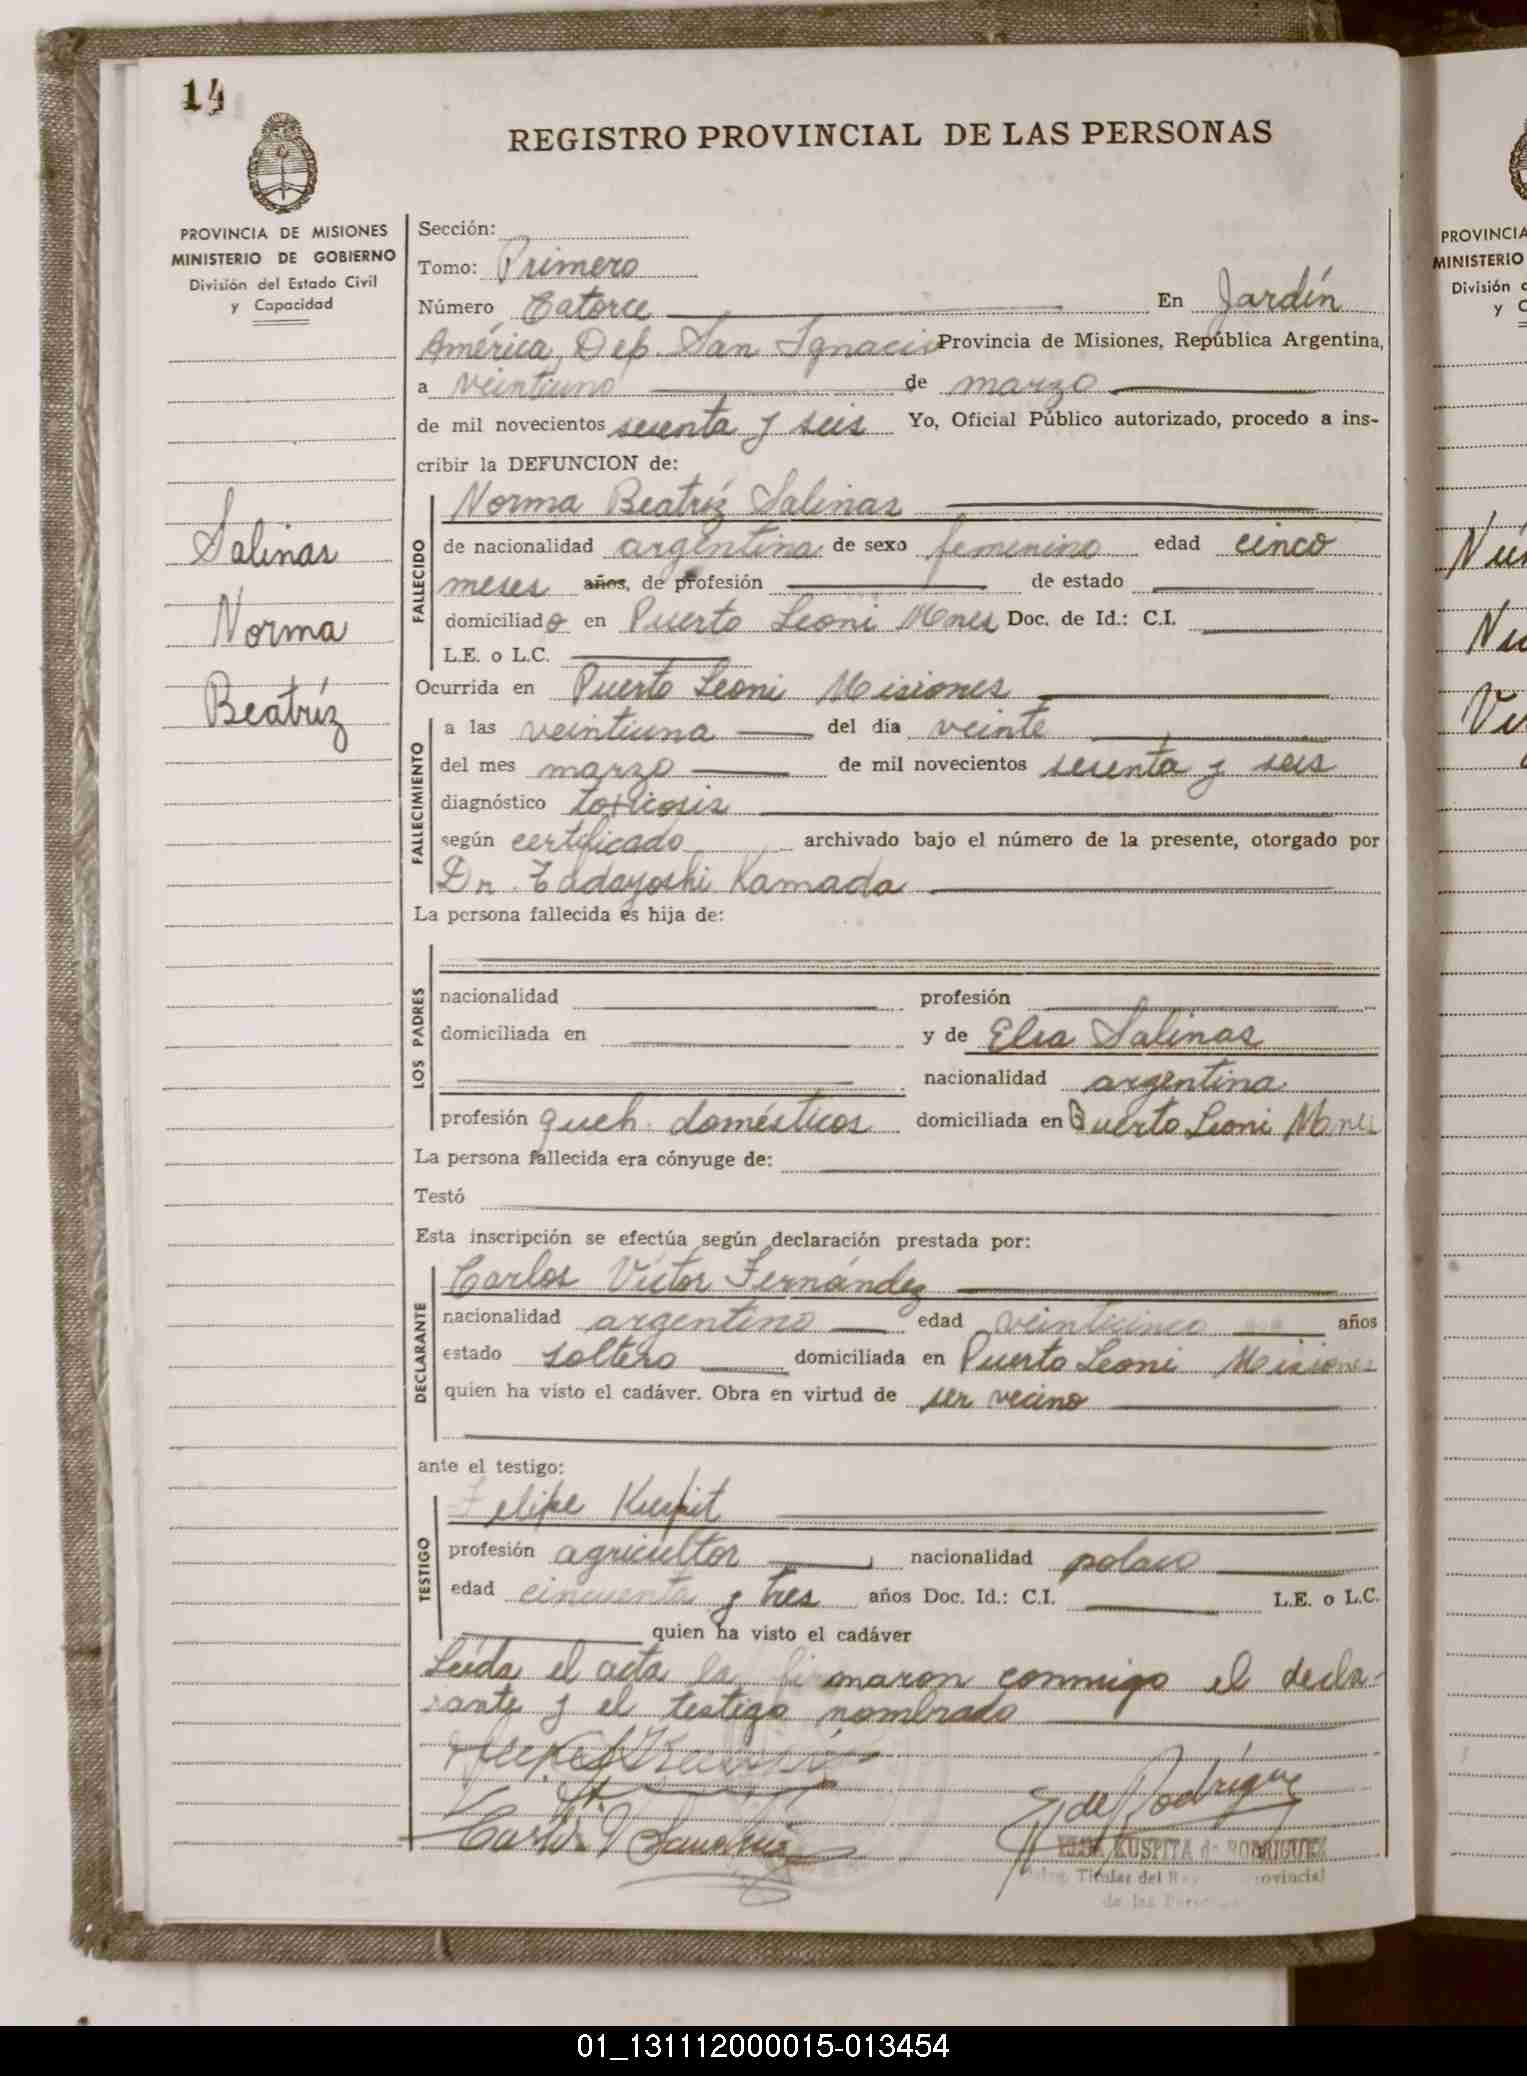 14
REGISTRO PROVINCIAL DE LAS PERSONAS
PROVINCIA DE MISIONES
MINISTERIO DE GOBIERNO
División del Estado Civil
y Capacidad
Salinas
Norma
Beatríz
Sección:
Tomo: Primero
Número Catorce En Jardín
América, Dep. San Ignacio Provincia de Misiones, República Argentina,
a veintiuno de marzo
de mil novecientos sesenta y seis Yo, Oficial Público autorizado, procedo a ins-
cribir la DEFUNCION de:
FALLECIDO
Norma Beatríz Salinas
de nacionalidad argentina de sexo femenino edad cinco
meses años, de profesión de estado
domiciliado en Puerto Leoni Mnes Doc. de Id.: C.I.
L.E. o L.C.
Ocurrida en Puerto Leoni Misiones
FALLECIMIENTO
a las veintiuna del día veinte
del mes marzo de mil novecientos sesenta y seis
diagnóstico toxicosis
según certificado archivado bajo el número de la presente, otorgado por
Dr. Tadayoshi Kamada
La persona fallecida es hija de:
LOS PADRES
nacionalidad profesión
domiciliada en y de Elsa Salinas
nacionalidad argentina
profesión queh. domésticos domiciliada en Puerto Leoni Mnes
La persona fallecida era cónyuge de:
Testó
Esta inscripción se efectúa según declaración prestada por:
DECLARANTE
Carlos Víctor Fernández
nacionalidad argentino edad veinticinco años
estado soltero domiciliada en Puerto Leoni Misiones
quien ha visto el cadáver. Obra en virtud de ser vecino
ante el testigo:
TESTIGO
Felipe Kuspit
profesión agricultor nacionalidad polaco
edad cincuenta y tres años Doc. Id.: C.I. L.E. o L.C.
quien ha visto el cadáver
Leída el acta la firmaron conmigo el decla-
rante y el testigo nombrado
E. de Rodríguez
ELSA KUSPITA de RODRIGUEZ
Titular del Reg Provincial
de las Personas
PROVINCIA
MINISTERIO
División d
y C
01_131112000015-013454